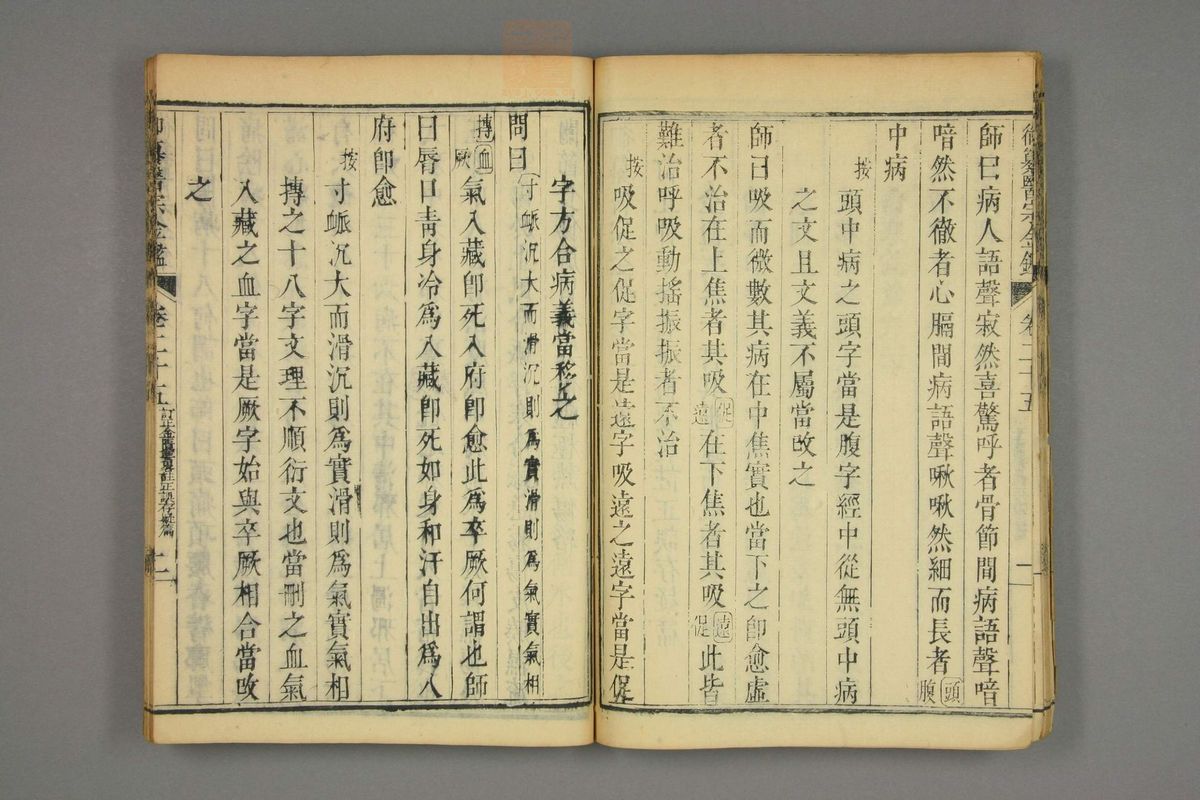 師曰病人語聲寂然喜驚呼者骨節間病語聲喑
喑然不徹者心膈間病語聲啾啾然細而長者頭腹
中病
按頭中病之頭字當是腹字經中從無頭中病
之文且文義不屬當改之
師曰吸而微數其病在中焦實也當下之卽愈虛
者不治在上焦者其吸促遠在下焦者其吸遠促此皆
難治呼吸動搖振振者不治
按吸促之促字當是遠字吸遠之遠字當是促
字方合病義當移之
問曰寸脈沉大而滑沉則爲實滑則爲氣實氣相
搏血厥氣入藏卽死入府卽愈此爲卒厥何謂也師
曰唇口靑身冷爲入藏卽死如身和汗自出爲入
府卽愈
按寸脈沉大而滑沉則爲實滑則爲氣實氣相
搏之十八字文理不順衍文也當刪之血氣
入藏之血字當是厥字始與卒厥相合當改
之
卷二十五